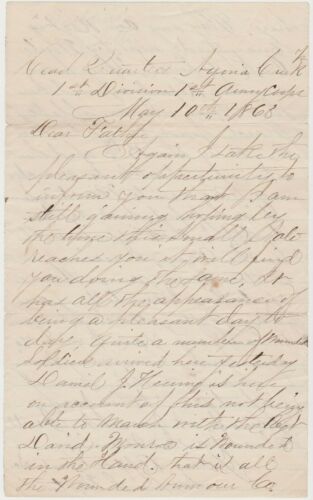 Head Quarters Aquia Creek
1st Division 1st Army Corps
May 10th 1863
Dear Father
Again I take the
pleasant opportunity to
inform you that I am
still gaining hoping by
the time this small
reaches you it will find
you doing the same, It
has all the appearance of
being a pleasant day to
day, quite a number of wounded
Soldiers arrived here yesterday
Daniel J. is here
on account of his not being
able to March with the Regt
David Monroe is Wounded
in the Hand. that is all
the Wounded from our Co.